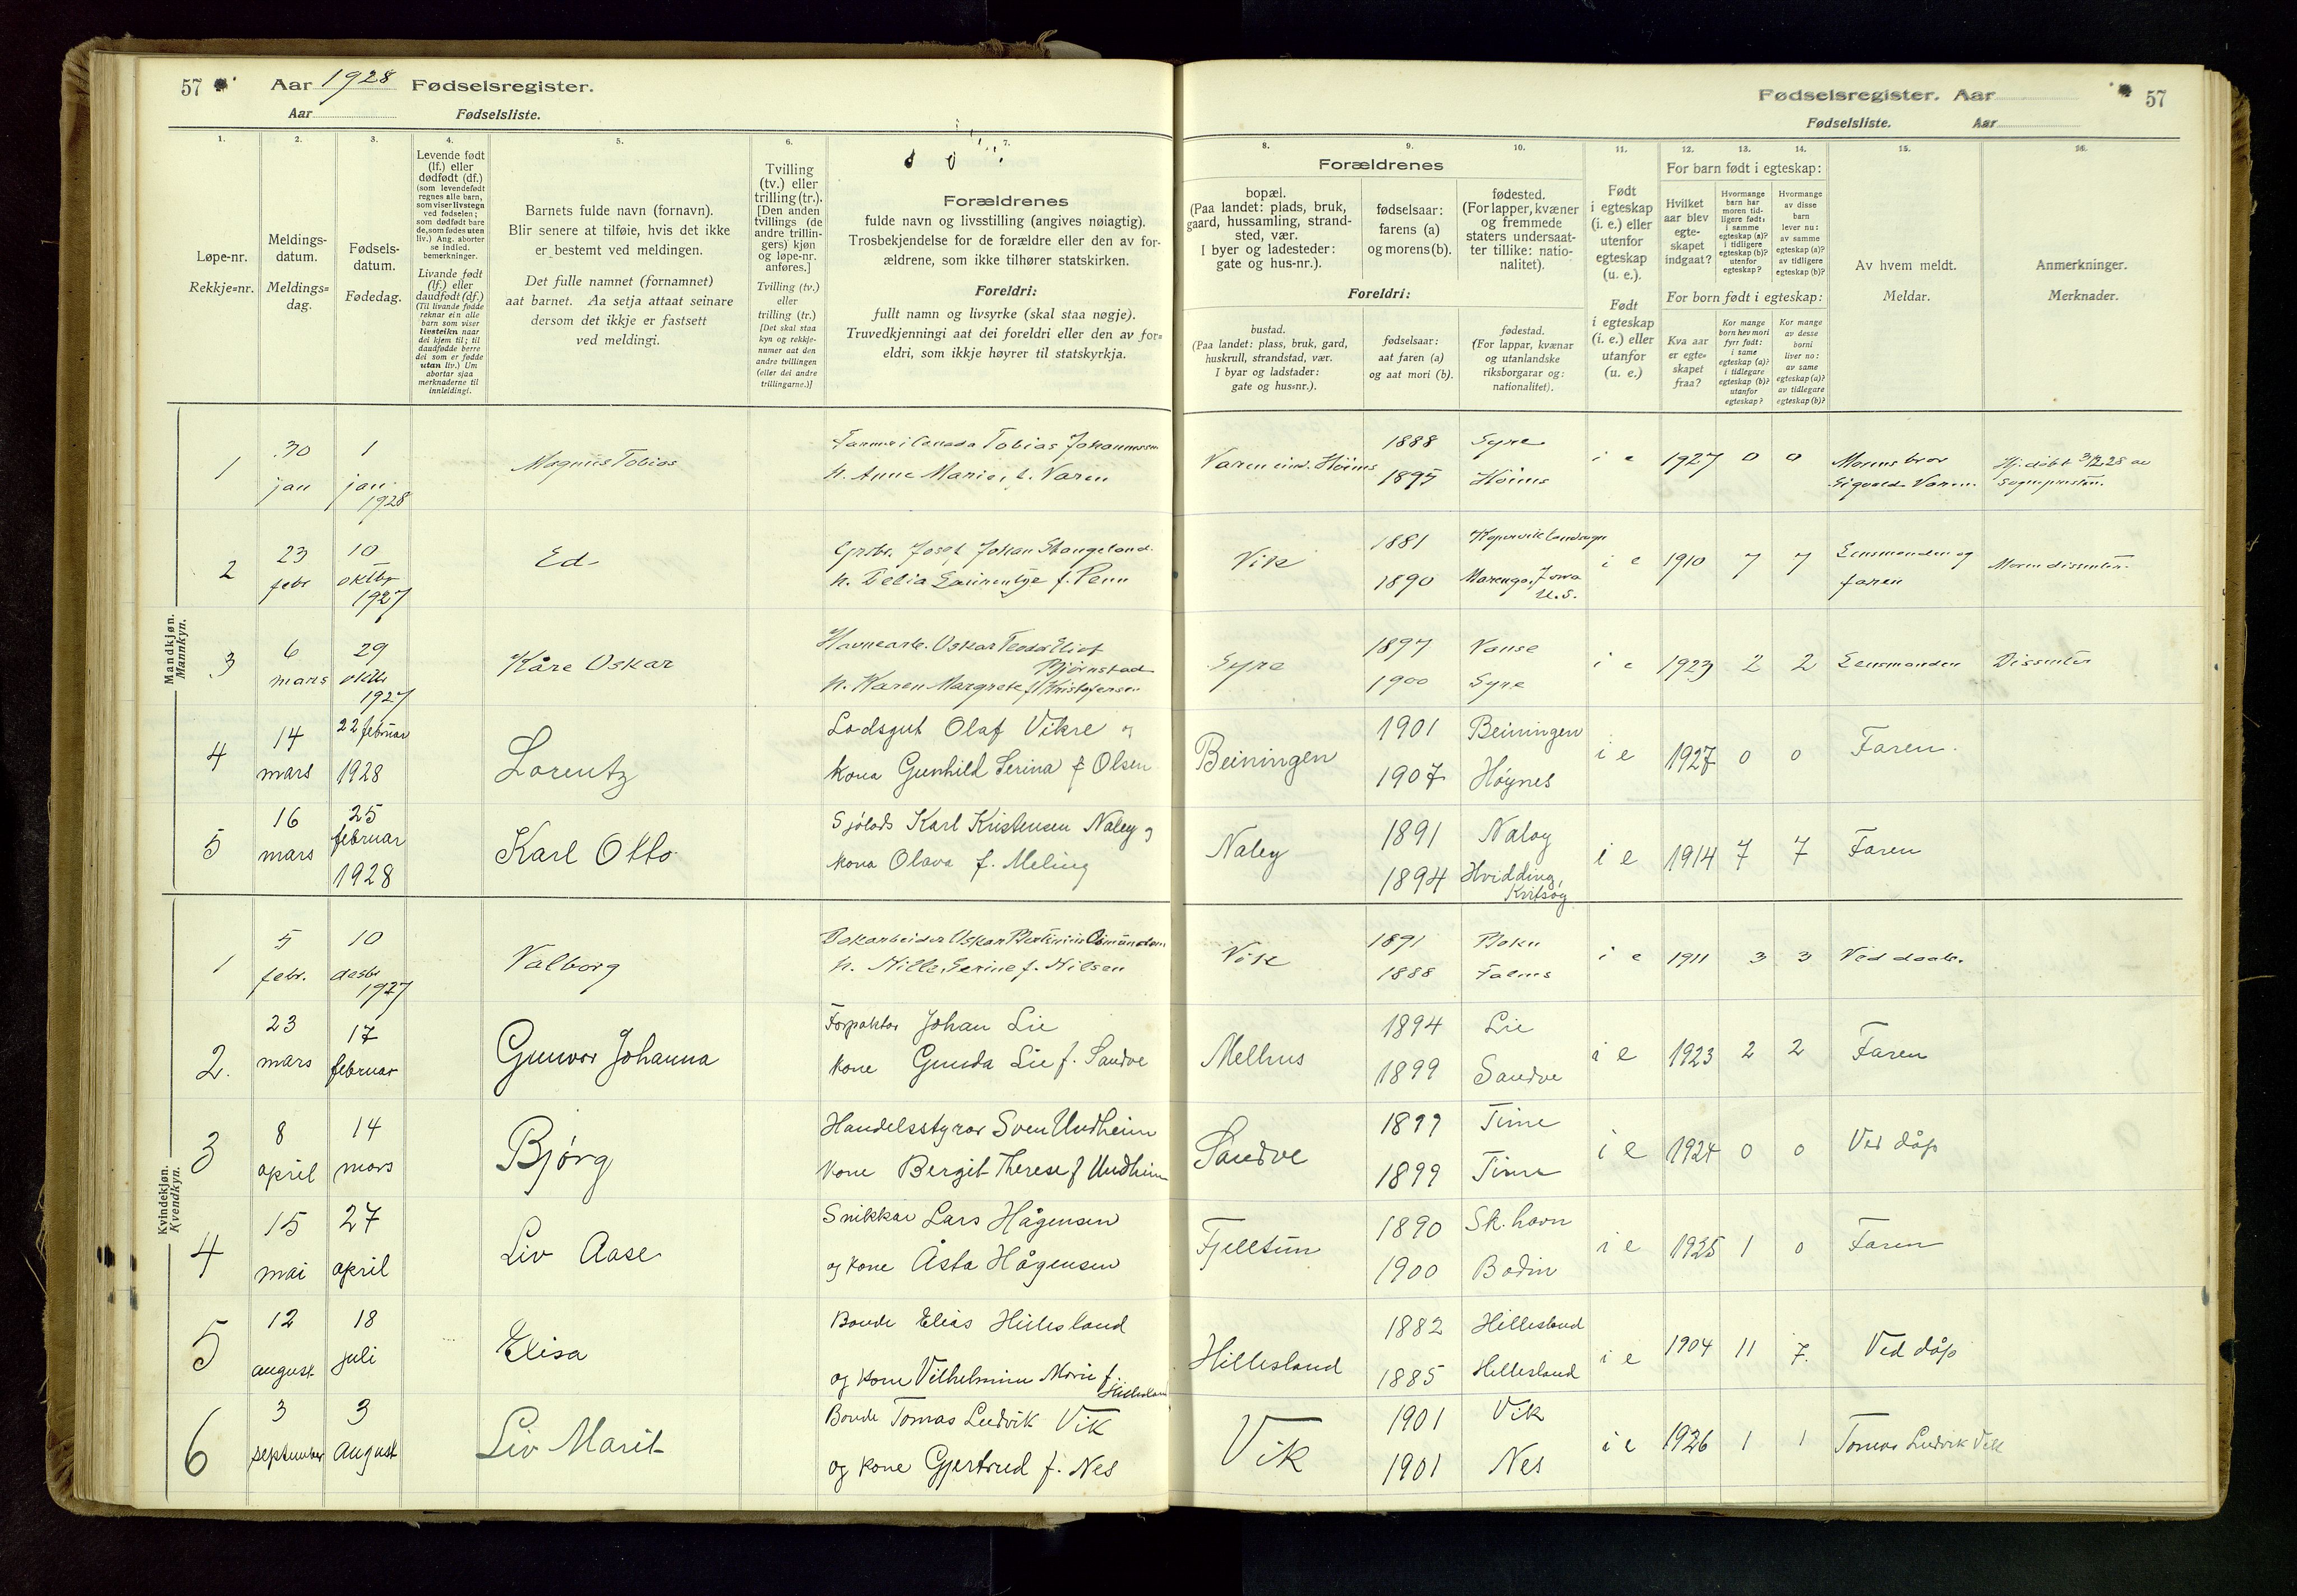 57 Aar 1928 Fødselsregister.
Aar Fødselsliste.
Fødselsregister. Aar 57
Fødselsliste. Aar
1. 2. 3. 4. 5. 6. 7. 8. 9. 10. 11. 12. 13. 14. 15. 16.
Løpe-nr.
Rekkje=nr.
Meldings-
datum.
Meldings=
dag.
Fødsels-
datum.
Fødedag.
Levende født
(lf.) eller
dødfødt (df.)
(som levendefødt
regnes alle barn,
som viser livstegn
ved fødselen;
som dødfødt bare
de, som fødes uten
liv.) Ang. aborter
se indled.
bemerkninger.
Livande født
(lf.) eller
daudfødt (df.)
(Til livande fødde
reknar ein alle
born som viser
livsteikn naar
dei kjem til; til
daudfødde berre
dei som er fødde
utan liv.) Um
abortar sjaa
merknaderne til
innleidingi.
Barnets fulde navn (fornavn).
Blir senere at tilføie, hvis det ikke
er bestemt ved meldingen.
Det fulle namnet (fornamnet)
aat barnet. Aa setja attaat seinare
dersom det ikkje er fastsett
ved meldingi.
Tvilling
(tv.) eller
trilling (tr.).
[Den anden
tvillings (de
andre trillin-
gers) kjøn
og løpe-nr.
anføres.]
Tvilling (tv.)
eller
trilling (tr.)
[Det skal staa
kyn og rekkje-
numer aat den
andre tvillingen
(eller dei andre
trillingarne.)]
Forældrenes
fulde navn og livsstilling (angives nøiagtig).
Trosbekjendelse for de forældre eller den av for-
ældrene, som ikke tilhører statskirken.
Foreldri:
fullt namn og livsyrke (skal staa nøgje).
Truvedkjenningi aat dei foreldri eller den av for=
eldri, som ikkje høyrer til statskyrkja.
Forældrenes
bopæl.
(Paa landet: plads, bruk,
gaard, hussamling, strand-
sted, vær.
I byer og ladesteder:
gate og hus-nr.).
fødselsaar:
farens (a)
og morens (b).
fødested.
(For lapper, kvæner
og fremmede
staters undersaat-
ter tillike: natio-
nalitet).
Foreldri:
bustad.
(Paa landet: plass, bruk, gard,
huskrull, strandstad, vær.
I byar og ladstader:
gate og hus=nr.).
fødselsaar:
aat faren (a)
og aat mori (b).
fødestad.
(For lappar, kvænar
og utanlandske
riksborgarar og:
nationalitet).
Født
i egteskap
(i. e.) eller
utenfor
egteskap
(u. e.).
Født
i egteskap
(i. e.) eller
utanfor
(u. e.)
For barn født i egteskap:
Hvilket
aar blev
egte-
skapet
indgaat?
Hvormange
barn har
moren tid-
ligere født:
i samme
egteskap (a)?
i tidligere
egteskap (b)?
utenfor
egteskap?
Hvormange
av disse
barn
lever nu:
av samme
egteskap (a)?
av tidligere
egteskap (b)?
For born født i egteskap:
Kva aar
er egte=
skapet
fraa?
Kor mange
born hev mori
fyrr født:
i same
egteskap (a)?
i tidlegare
egteskap (b)?
utanfor
egteskap?
Kor mange
av desse
borni
liver no:
av same
egteskap (a)?
av tidlegare
egteskap (b)?
Av hvem meldt.
Meldar.
Anmerkninger.
Merknader.
Mandkjøn.
Mannkyn.
1 30 jan 1 jan. 1928 Magnus Tobias
Farmer i Canada Tobias Johannessen
h. Anne Marie, f. Varen
Varen eind. Høins 1888 Syre 1895 Høins i e 1927 0 0
Morens bror
Sigvald Varen
Hj. døbt 3/2 28 av
Sognepresten.
2 23 febr 10 oktbr 1927 Ed-
Grbr. Josef Johan Stangeland
h. Delia Laurentze f. Penn
Vik 1881 Kopervik landsogn 1890 Marengo, Jowa U. S. i e 1910 7 7
Lensmanden og
faren
Moren dissenter.
3 6 mars 29 oktbr 1927 Kåre Oskar
Havnearb. Oskar Teodor Eliot
Bjørnstad
h. Karen Margrete f. Kristofersen
Syre 1897 Vanse 1900 Syre i e 1923 2 2 Lensmanden Dissenter
4 14 mars 22 februar 1928 Lorentz
Lodsgut Olaf Vikre og
kona Gunhild Serina f Olsen
Beiningen 1901 Beiningen 1907 Høynes i e 1927 0 0 Faren.
5 16 mars 25 februar 1928 Karl Otto
Sjølods Karl Kristensen Naley og
kona Olava f. Meling
Naley 1891 Naloy 1894 Hvidding, Kvitsøy i e 1914 7 7 Faren
Kvindekjøn.
Kvendkyn.
1 5 febr. 10 desbr 1927 Valborg
Dokarbeider Oskar Bertinius Osmundsen
h. Nille Serine f. Nilsen
Vik 1891 Bokn 1888 Falnes i e 1911 3 3 Ved daab.
2. 23 mars 17 februar Gunvor Johanna
Forpaktar Johan Lie
kone Gunda Lie f. Sandve
Melhus 1894 Lie 1899 Sandve i e 1923 2 2 Faren
3 8 april 14 mars Bjørg
Handelsstyrar Sven Undheim
kone Bergit Therese f Undheim
Sandve 1899 Time 1899 Time i e 1924 0 0 Ved dåp
4 15 mai 27 april Liv Aase
Snikkar Lars Hågensen
og kone Åsta Hågensen
Fjelltun 1890 Sk. havn 1900 Bodin i e 1925 1 0 Faren
5 12 august 18 juli Elisa
Bonde Elias Hillesland
og kone Vilhelmine Marie f.
Hillesland
Hillesland 1882 Hillesland 1885 Hillesland i e 1904 11 7. Ved dåp
6 3 september 3 august Liv Marit
Bonde Tomas Ludvik Vik
og kone Gjertrud f. Nes
Vik 1901 Vik 1901 Nes i e 1926 1 1 Tomas Ludvik Vik